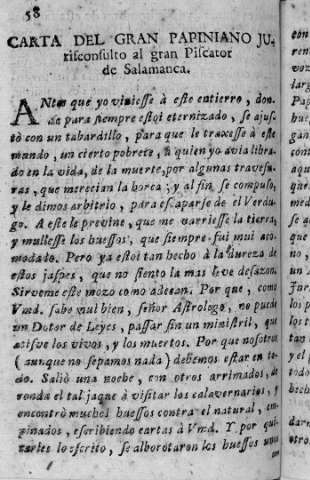 58
CARTA DEL GRAN PAPINIANO JU-
risconsulto al gran Piscator
de Salamanca.
ANtes que yo viniesse à este entierro, don-
de para siempre estoi eternizado, se ajus-
tò con un tabardillo, para que le traxesse à este
mundo, un cierto pobrete, à quien yo avia libra-
do en la vida, de la muerte, por algunas travesu-
ras, que merecian la horca; y al fin, se compuso,
y le dimos arbitrio, para escaparse de el Verdu-
go. A este le previne, que me varriesse la tierra,
y mullesse los huessos, que siempre fui mui aco-
modado. Pero ya estoi tan hecho à la dureza de
estos jaspes, que no siento la mas leve desazon.
Sirveme este mozo como adecan. Por que, como
Vmd. sabe mui bien, señor Astrologo, no puede
un Dotor de Leyes, passar sin un ministril, que
atisve los vivos, y los muertos. Por que nosotros
(aunque no sepamos nada) debemos estar en to-
do. Saliò una noche, con otros arrimados, de
ronda el tal jaque à visitar los calavernarios, y
encontrò muchos huessos contra el natural, em-
pinados, escribiendo cartas à Vmd. Y por qui-
tarles lo escrito, se alborotaron los huessos unos